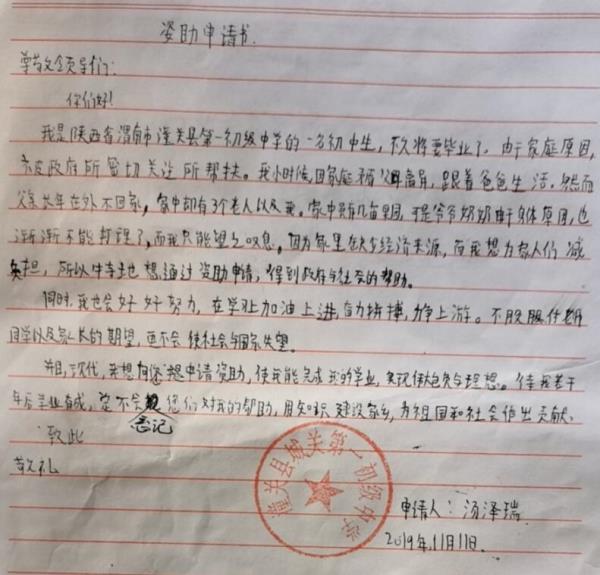 资助申请书.
尊敬的领导们:
你们好!
我是陕西省渭南市潼关县第一初级中学的一名初中生, 不久将要毕业了. 由于家庭原因,
亦被政府所密切关注所帮扶。我小时候, 因家庭矛盾父母离异, 跟着爸爸生活. 然而
父亲长年在外不回家, 家中却有3个老人以及我。家中只有几亩果园, 于是爷爷奶奶由于身体原因, 也
渐渐不能打理了, 而我只能望之叹息, 因为家里缺乏经济来源, 而我想为家人们减
负担, 所以想通过资助申请, 得到政府与社会的帮助。
同时, 我也会好好努力, 在学业上加油上进, 奋力拼搏, 力争上游。不辜负老师
同学以及家长的期望, 更不会使社会与国家失望。
并且, 现代, 我想向您想申请资助, 使我能完成我的学业, 实现伟大抱负与理想。待我若干
年后学业有成, 定不会忘记您们对我的帮助, 用知识建设家乡, 为祖国和社会作出贡献.
致此
敬礼
潼关县城关第一初级中学
申请人: 汤泽瑞
2019年11月11日.